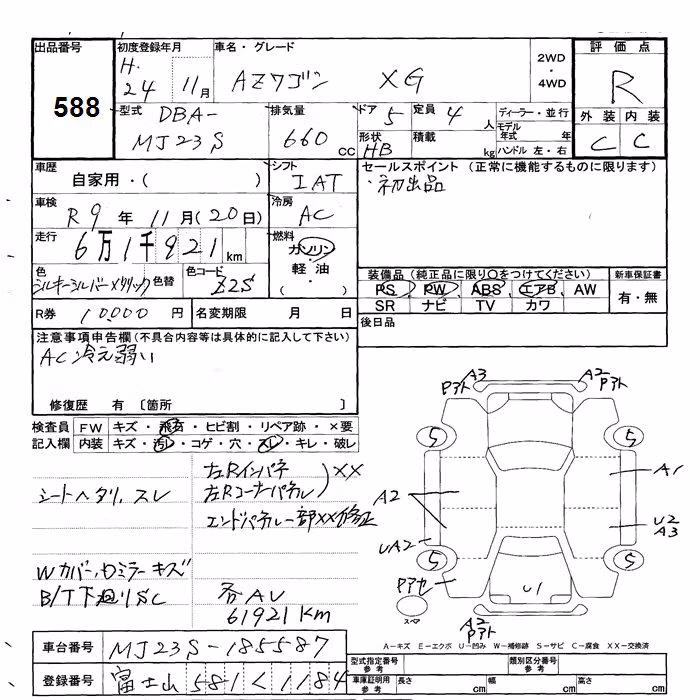 出品番号 初度登録年月 車名・グレード 評価点
588
H.24 11月 AZワゴン XG 2WD・4WD R
型式 DBA-MJ23S 排気量 660cc ドア 5 定員 4人 ディーラー・並行 外装 内装
形状 HB 積載 kg モデル年式 年 ハンドル 左・右 C C
車歴 自家用・( ) シフト IAT セールスポイント (正常に機能するものに限ります)
・初出品
車検 R9年 11月(20日) 冷房 AC
走行 6万1千921km 燃料 ガソリン・軽油・( )
色 シルキーシルバーメタリック 色替 色コード Z2S
装備品(純正品に限り○をつけてください) 新車保証書
PS PW ABS エアB AW 有・無
SR ナビ TV カワ
R券 10,000円 名変期限 月 日 後日品
注意事項申告欄(不具合内容等は具体的に記入して下さい)
AC冷え弱い
修復歴 有 〔箇所 〕
検査員記入欄 FW キズ・飛石・ヒビ割・リペア跡・×要
内装 キズ・汚レ・コゲ・穴・スレ・キレ・破レ
シートヘタリ、スレ
左Rインパネ
左Rコーナーパネル XX
エンドパネル一部XX修正
Wカバー、ドミラーキズ
B/T下廻りSC
各AU
61921Km
A3 Pアト
A2 Pアト
5 5
A1
A2
U2 A3
UA2
5 5
Pアセ
U1
スペア
A2 Pアト
A-キズ E-エクボ U-凹み W-補修跡 S-サビ C-腐食 XX-交換済
車台番号 MJ23S-185587
登録番号 富士山 581 く 1184
型式指定番号 参考 類別区分番号 参考
車庫証明用 参考 長さ cm 幅 cm 高さ cm